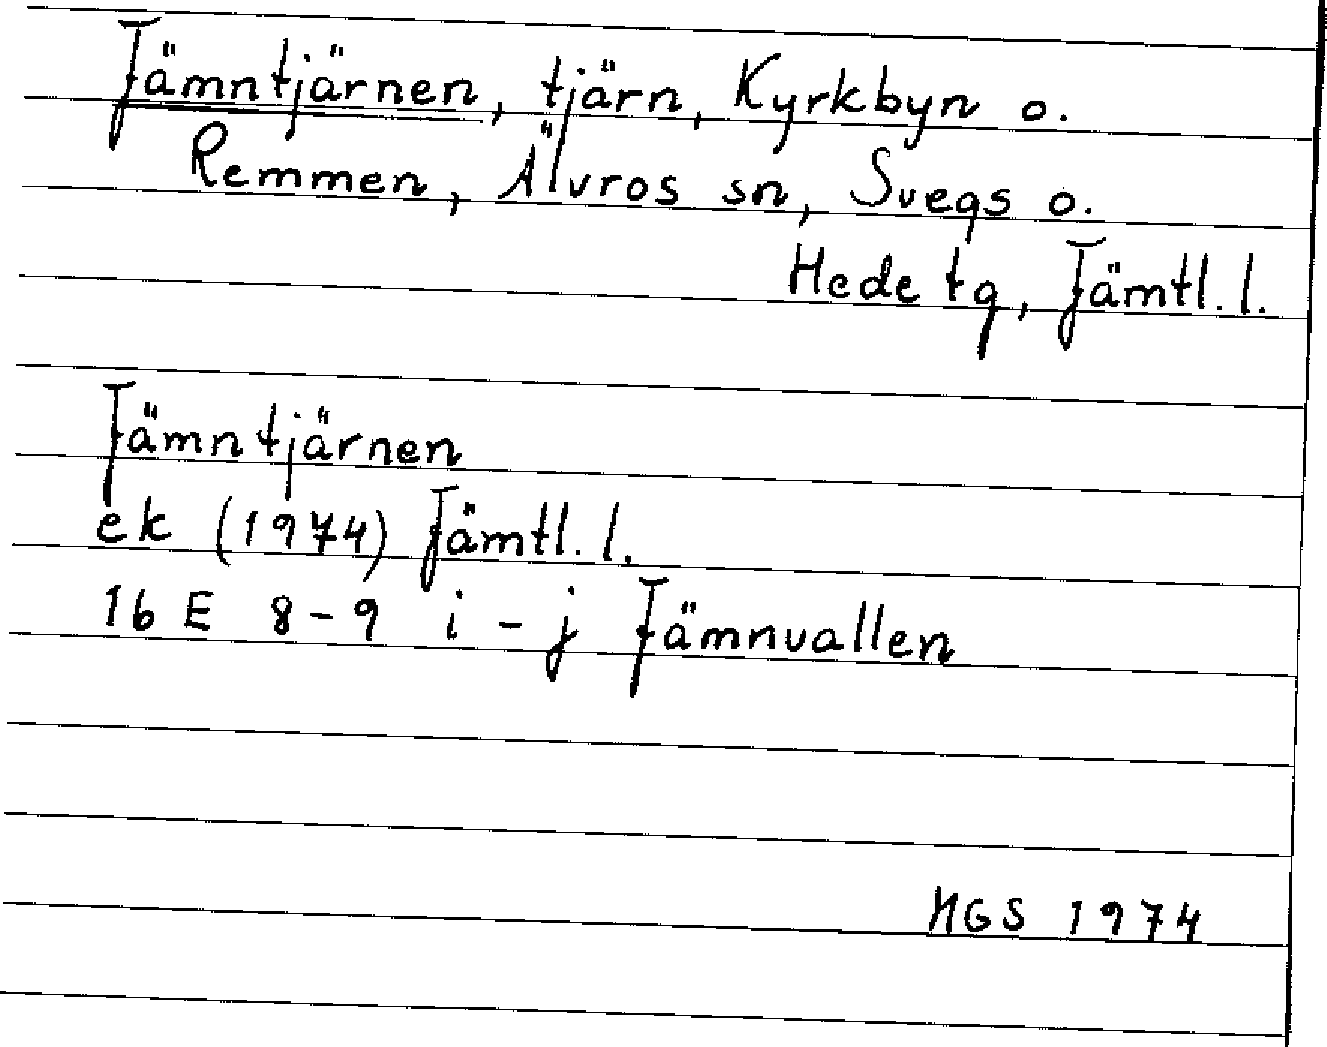 Jämntjärnen, tjärn, Kyrkbyn o.
Remmen, Älvros sn, Svegs o.
Hede tg, Jämtl. l.
Jämntjärnen
ek (1974) Jämtl. l.
16 E 8-9 i-j Jämnvallen
NGS 1974